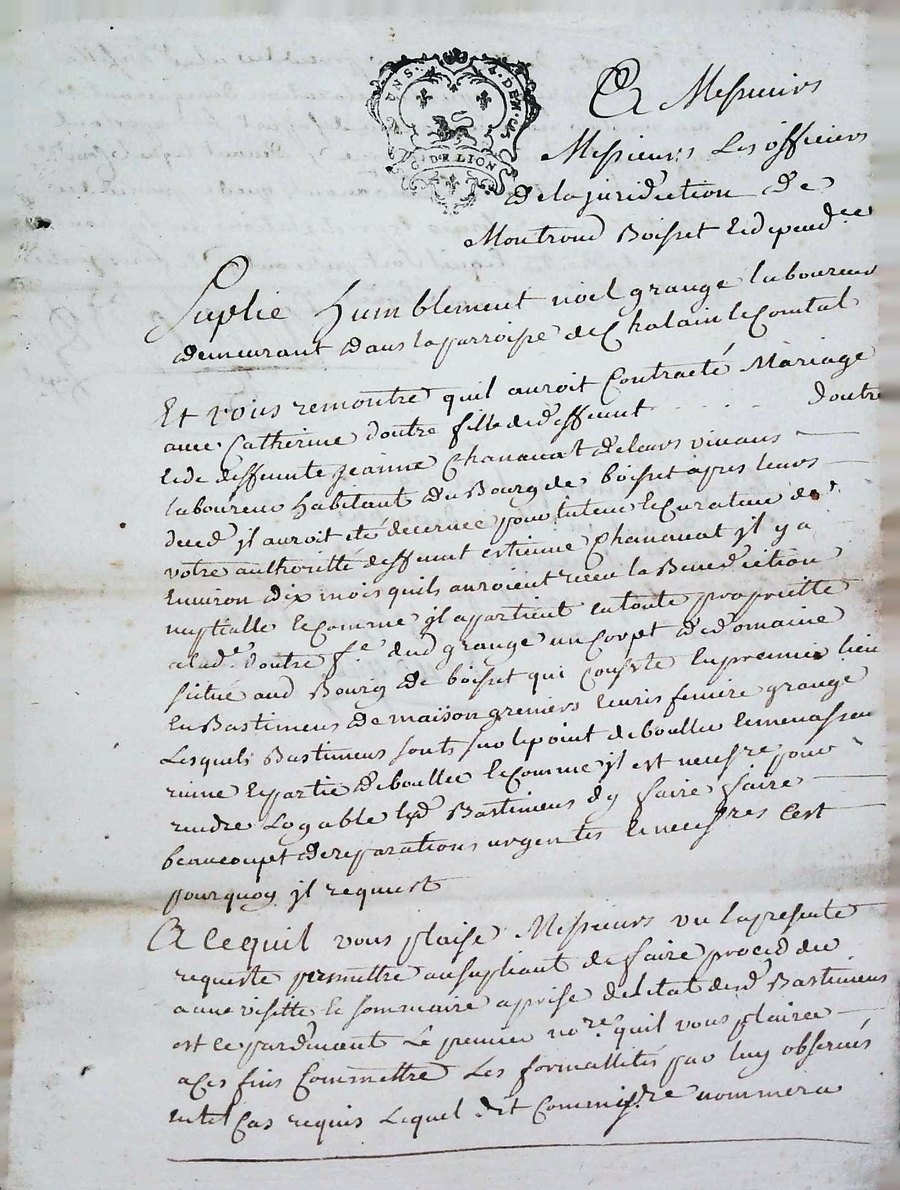 UN S. 4. DEN. CS
G. DE LION
A Messieurs
Messieurs Les officiers
de la juridiction de
Montrond Boisset et depend.ce
Suplie humblement noel grange laboureur
demeurant dans la parroisse de Chalain le Comtal
Et vous remontre quil auroit Contracté Mariage
avec Catherine doutre fille de deffunt doutre
et de deffunte jeanne Chanavat de leurs vivans
laboureur habitant du Bourg de boisset apres leurs
deced il auroit été decernee pour tuteur et curateur de
votre authoritté deffunt estienne Chanavat il y a
Environ dix mois quils auroient receu la Benediction
nuptialle et comme il appartient en toute proprietté
a lad.e doutre f.e dud grange un corps de domaine
situé aud Bourg de boisset qui consiste en premier lieu
En Bastimens de maison greniers ecuris feniere grange
Lesquels Bastimens sont sur le point de boullee et menassen
ruine et partie deboullee et comme il est necessre pour
rendre Logable lesd Bastimens dy faire faire
beaucoupt de reparations urgentes et necessres Cest
pourquoy il requiert
A ce quil vous plaise Messieurs vu la presente
requeste permettre au supliant de faire proceder
a une visitte et sommaire aprise de letat desd Bastimens
est ce pardevant Le premier no.re quil vous plairra
a Ces fins Commettre Les formallités par luy observés
en tel Cas requis Lequel dit Commissre nommera